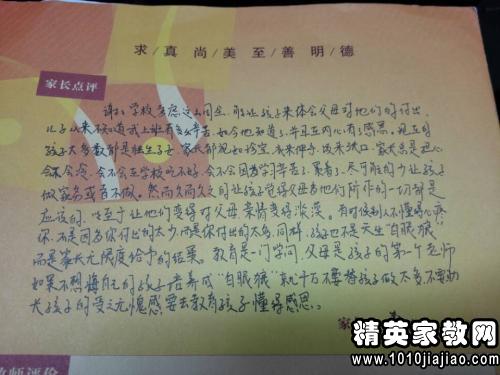 求/真/尚/美/至/善/明/德
家长点评
谢谢学校考虑这么周全,能让孩子来体会父母对他们的付出,
儿子以来不知道我上班有多辛苦,如今他知道了,并且在内心有了感恩,现在的
孩子大多数都是独生子女,家长都视如珍宝,衣来伸手,饭来张口,家长总是担心
会不会冷,会不会在学校吃不好,会不会因为学习辛苦了,累着了,尽可能的少让孩子
做家务或者不做。然而久而久之的让孩子觉得父母为他们所作的一切都是
应该的,以至于让他们变得对父母亲情变得淡漠。有时候别人不懂得心疼
你,不是因为你付出的太少,而是你付出的太多,同样,孩子也不是天生"白眼狼"
而是家长无限度给予的结果。教育是一门学问,父母是孩子的第一个老师
如果不想悔自己的孩子培养成"白眼狼"就千万不要替孩子做太多,不要助
长孩子的受之无愧感,要去教育孩子懂得感恩。
家
精英家教网
www.1010jiajiao.com
教师评价